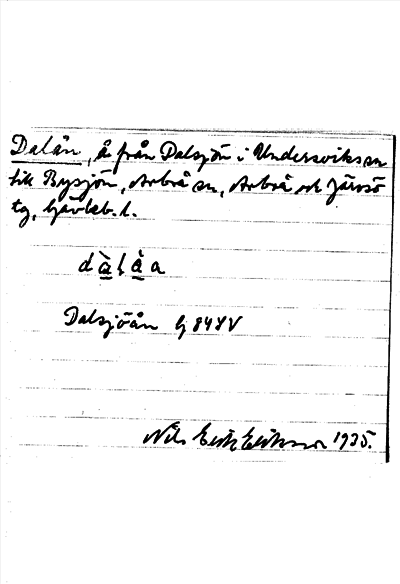 Dalån, å från Dalsjön i Undersviks sn
till Bysjön, Arbrå sn, Arbrå och Järvsö
tg, Gävleb. l.
dàlå̀a
Dalsjöån Gj 84 SV
Nils Erik Eriksson 1935.